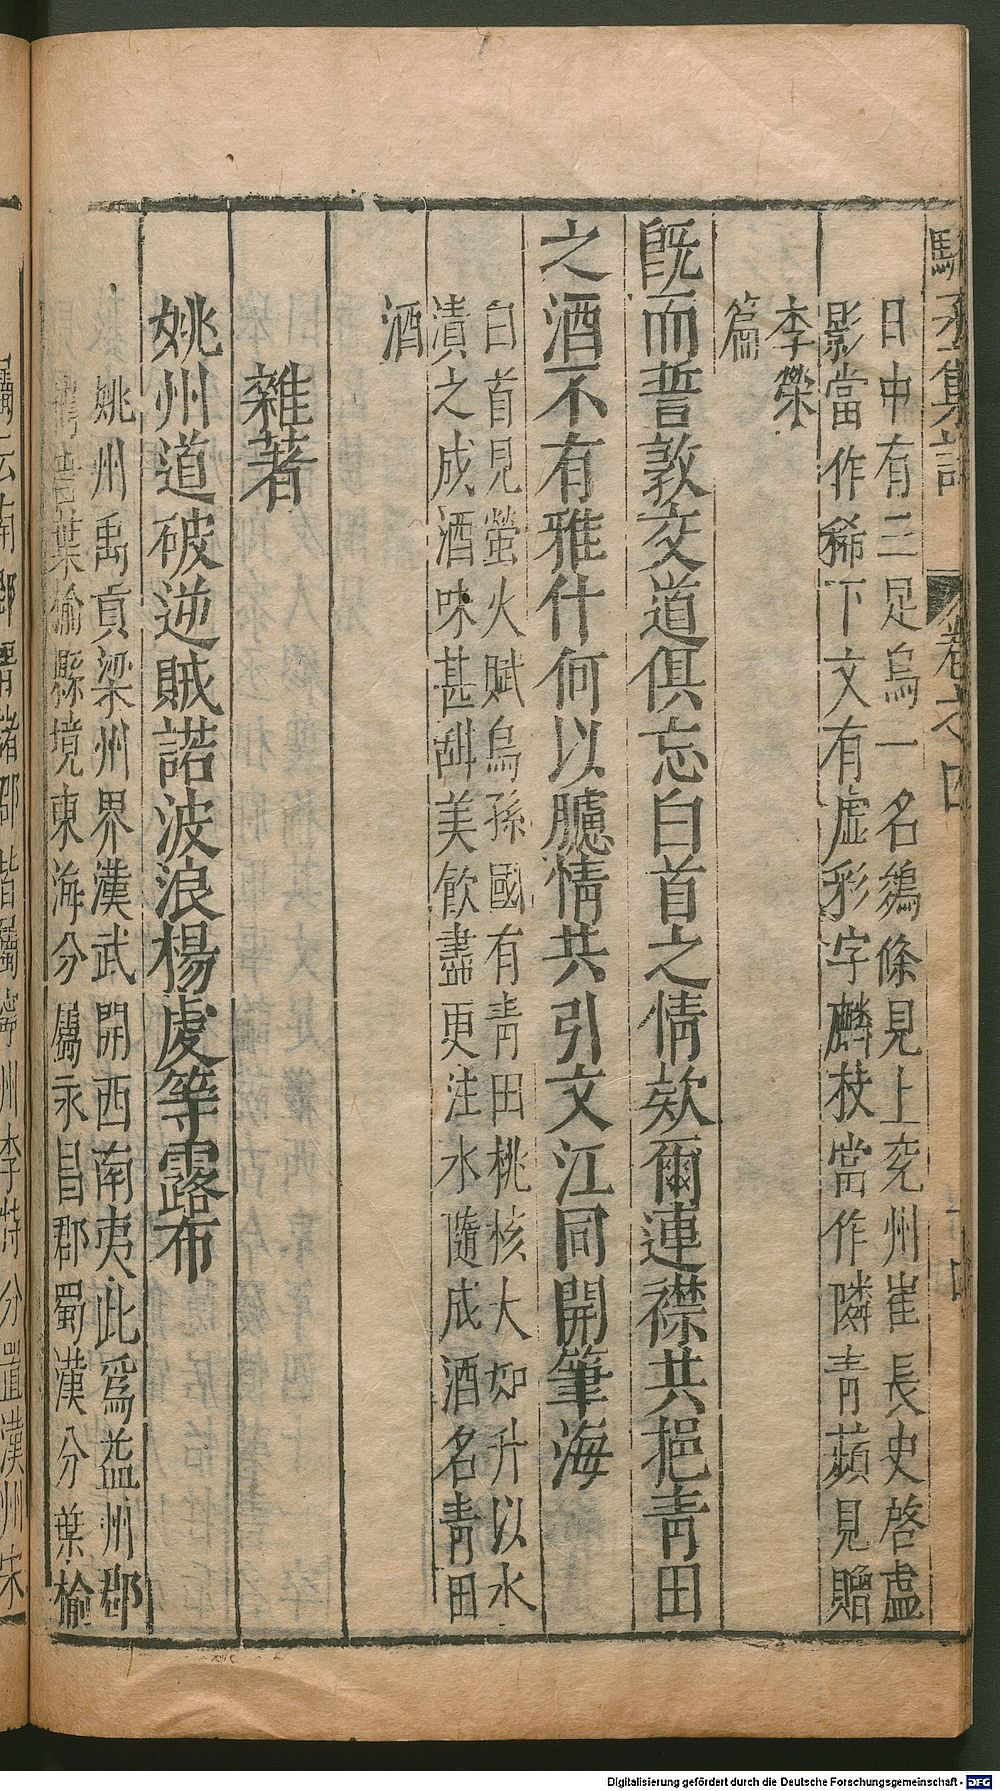 駱丞集註　卷之四
日中有三足烏一名鷄條見上兗州崔長史啓盧
影當作稀下文有虛彩字麟枝當作隣青蘋見贈
李榮
篇
旣而誓敦交道俱忘白首之情欵爾連襟共挹青田
之酒不有雅什何以臚情共引文江同開筆海
白首見螢火賦烏孫國有青田桃核大如升以水
漬之成酒味甚甜美飲盡更注水隨成酒名青田
酒
雜著
姚州道破逆賊諾波浪楊虔等露布
姚州禹貢梁州界漢武開西南夷此爲益州郡
葉榆縣境東海分屬永昌郡蜀漢分葉榆
屬云南郡
諸郡皆屬寧州李特分置漢州宋
Digitalisierung gefördert durch die Deutsche Forschungsgemeinschaft - DFG